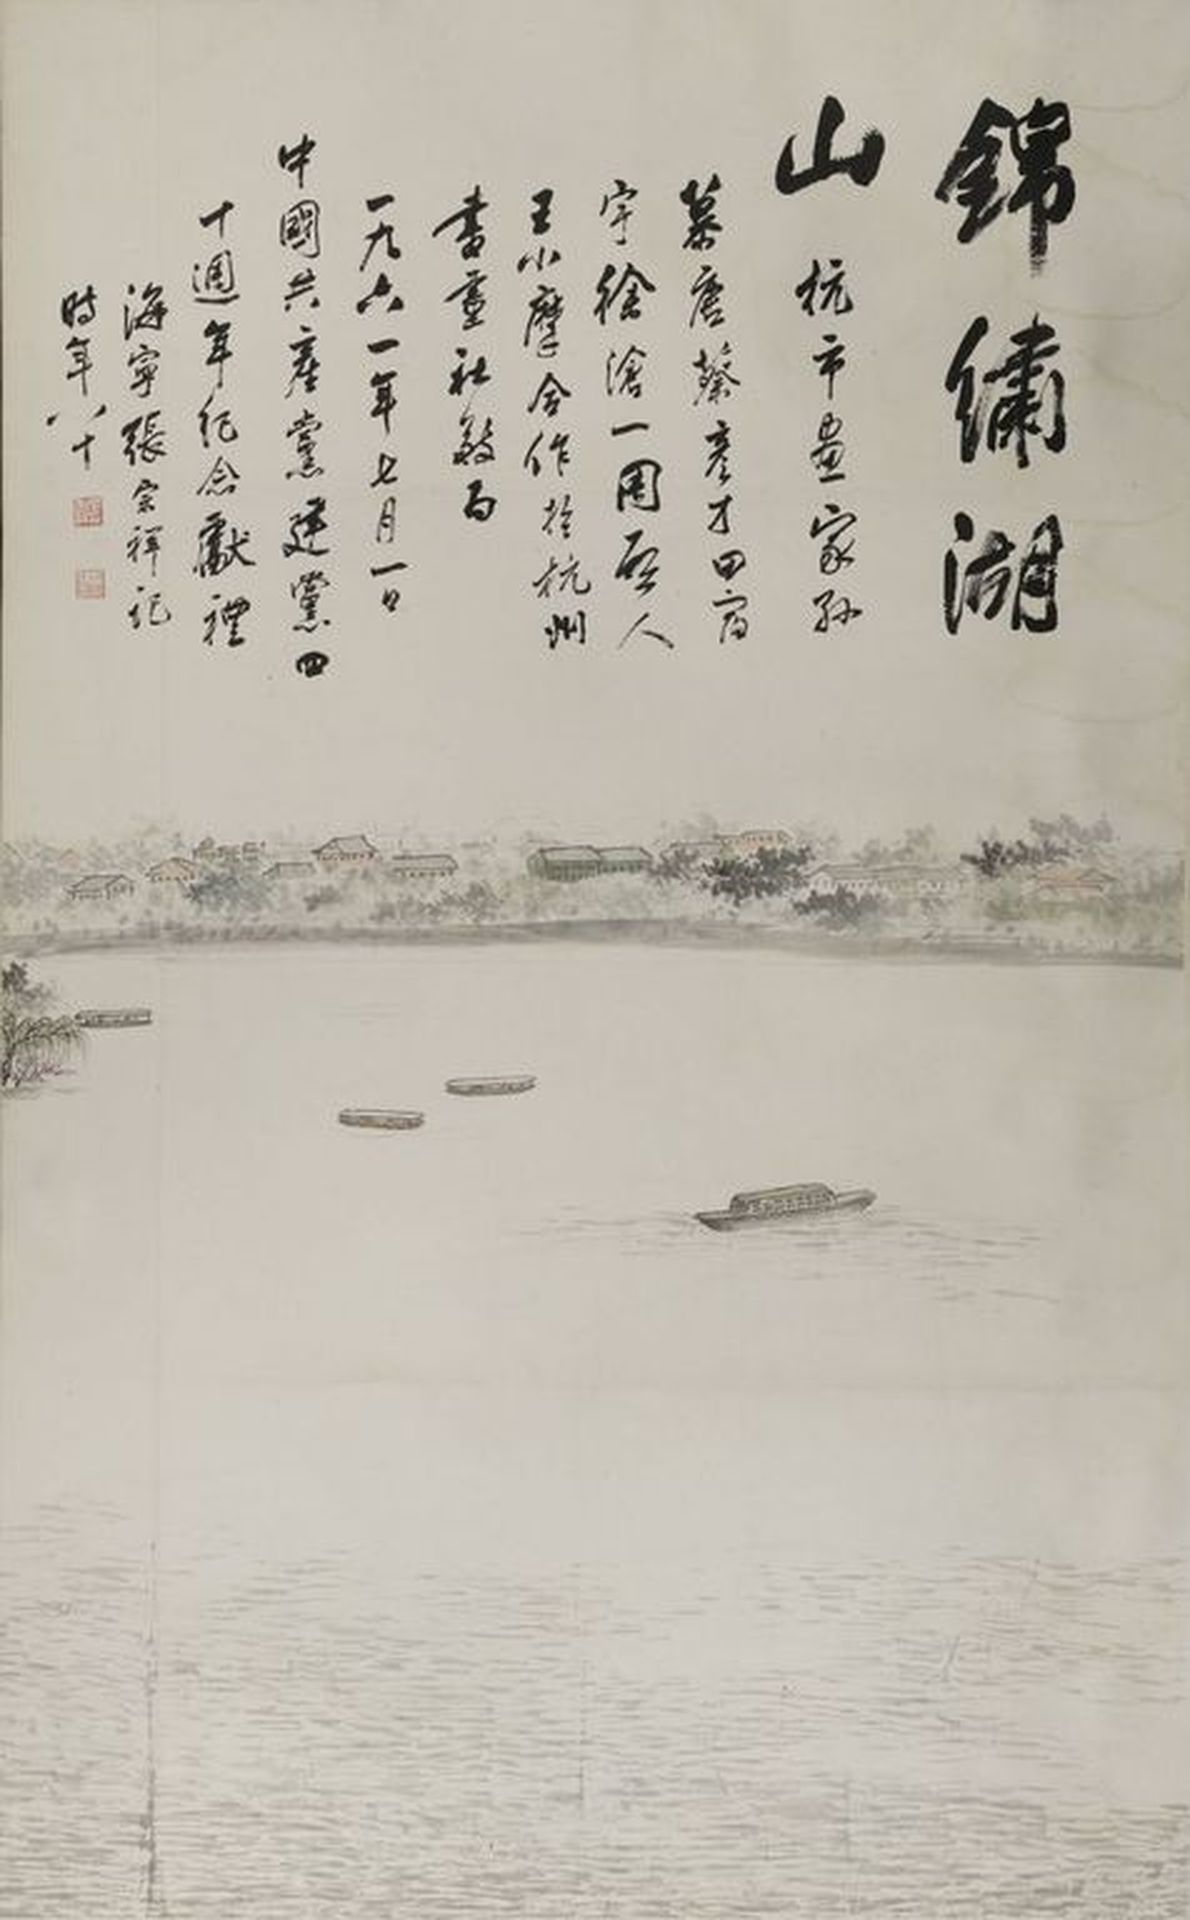 錦繡湖
山 杭市畫家孫
慕唐蔡彥才田宿
宇徐滄一周啟人
王小摩合作於杭州
書畫社敬為
一九六一年七月一日
中國共產黨建黨四
十週年紀念獻禮
海寧張宗祥記
時年八十